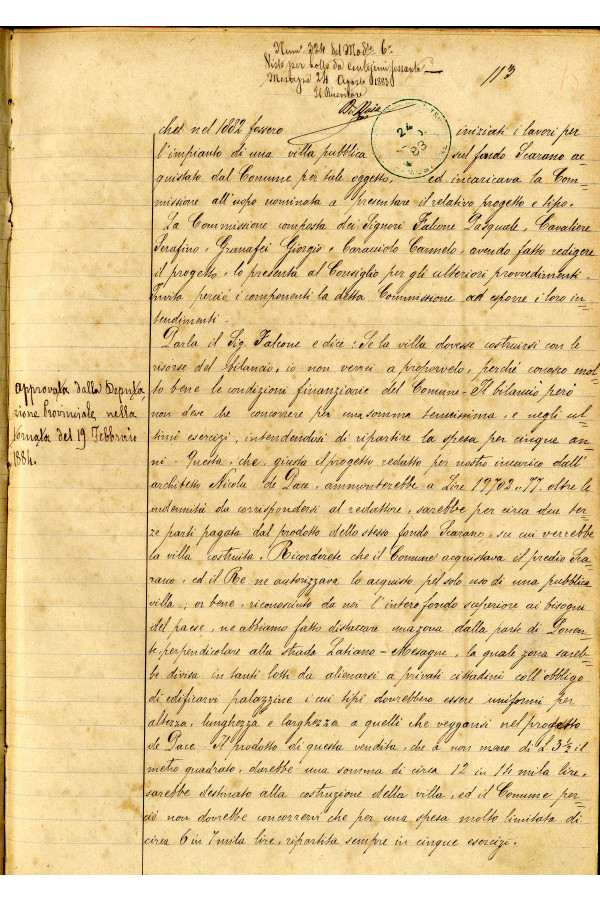 Num. 324 del Mod.lo 6.o
Visto per bollo da Centesimi sessanta
Mesagne 24 Agosto 1883
Il Ricevitore
113
24
83
che nel 1882 fossero iniziati i lavori per
l'impianto di una villa pubblica sul fondo Scarano ac=
quistato dal Comune per tale oggetto, ed incaricava la Com=
missione all'uopo nominata a presentare il relativo progetto e tipo.
La Commissione composta dei Signori Falcone Pasquale, Cavaliere
Serafino, Granafei Giorgio e Caracciolo Carmelo, avendo fatto redigere
il progetto, lo presenta al Consiglio per gli ulteriori provvedimenti.
Invita perciò i componenti la detta Commissione ad esporre i loro in=
tendimenti.
Parla il Sig. Falcone e dice: Se la villa dovesse costruirsi con le
risorse del bilancio, io non verrei a proporvelo, perché conosco mol=
to bene le condizioni finanziarie del Comune. Il bilancio però
non deve che concorrere per una somma tenuissima, e negli ul=
timi esercizi, intendendosi di ripartire la spesa per cinque an=
ni. Questa, che, giusta il progetto redatto per nostro incarico dall'
architetto Nicola de Pace, ammonterebbe a Lire 19702,77 oltre le
indennità da corrispondersi al redattore, sarebbe per circa due ter=
ze parti pagata dal prodotto dello stesso fondo Scarano, su cui verrebbe
la villa costruita. Ricorderete che il Comune acquistava il predio Sca=
rano, ed il Re ne autorizzava lo acquisto pel solo uso di una pubblica
villa; or bene, riconosciuto da noi l'intero fondo superiore ai bisogni
del paese, ne abbiamo fatto distaccare una zona dalla parte di Ponen=
te perpendicolare alla strada Latiano-Mesagne, la quale zona sareb=
be divisa in tanti lotti da alienarsi a privati cittadini coll'obbligo
di edificarvi palazzine i cui tipi dovrebbero essere uniformi per
altezza, lunghezza e larghezza a quelli che veggansi nel progetto
de Pace. Il prodotto di questa vendita, che a non meno di L. 3 ½ il
metro quadrato, darebbe una somma di circa 12 in 14 mila lire,
sarebbe destinato alla costruzione della villa, ed il Comune per=
ciò non dovrebbe concorrervi che per una spesa molto limitata di
circa 6 in 7 mila lire, ripartita sempre in cinque esercizi.
Approvata dalla Deputa=
zione Provinciale, nella
tornata del 19 Febbraio
1884.